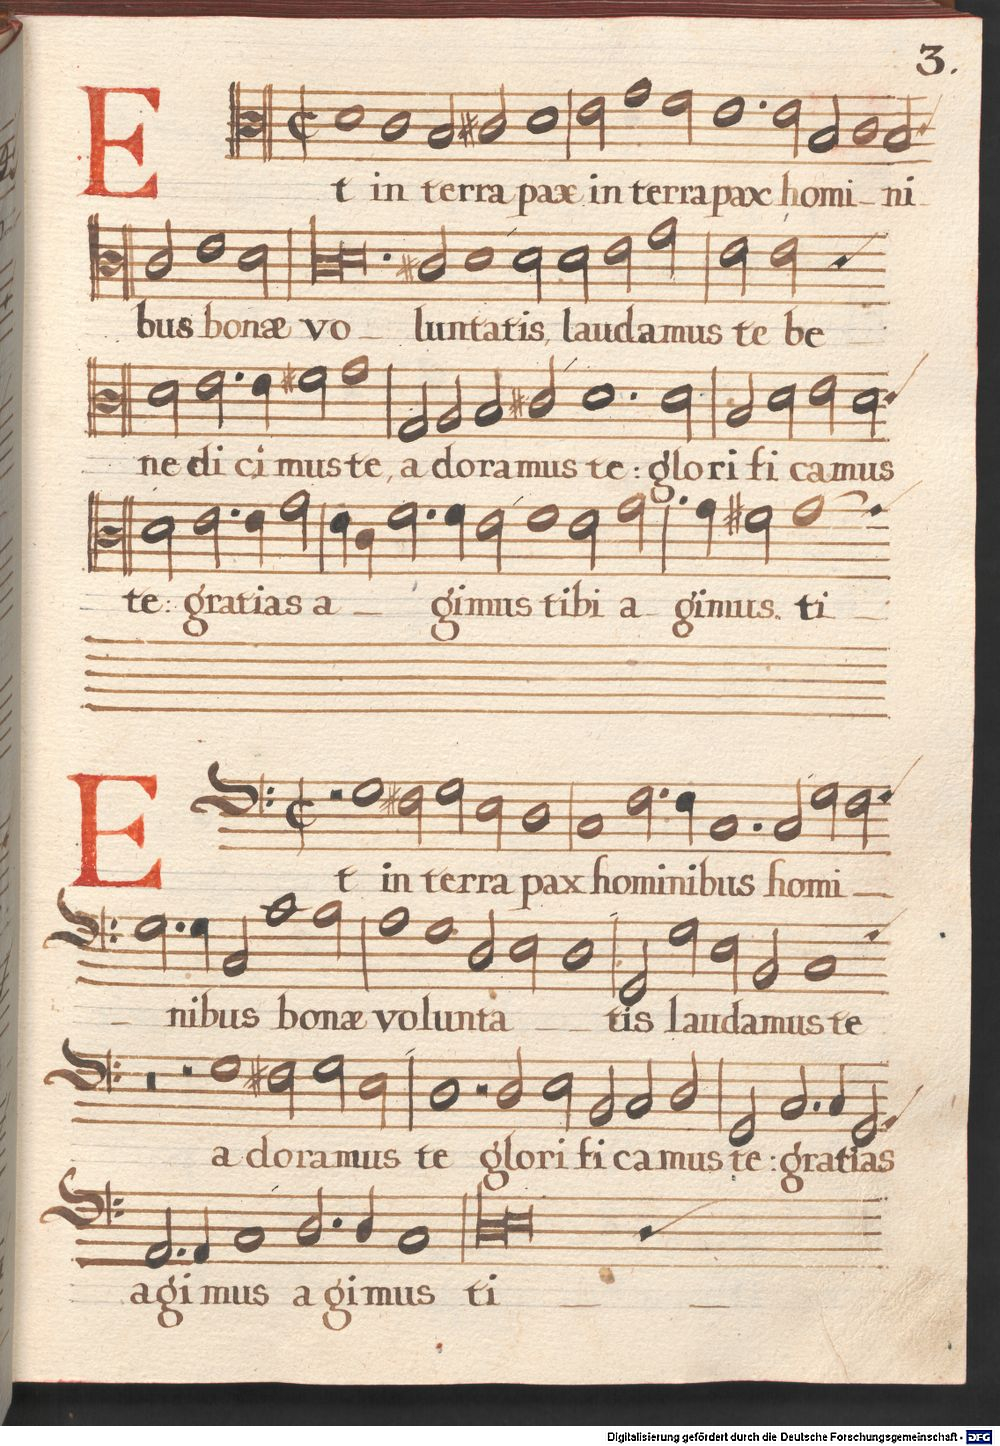 3.
Et in terra pax in terra pax homi_ni_
bus bonæ vo_ luntatis, laudamus te be
ne di ci mus te, a doramus te: glo ri fi ca mus
te: gratias a_ gimus tibi a_ gimus. ti_
Et in terra pax hominibus homi_
_ nibus bonæ volunta_ _ tis laudamus te
a doramus te glo ri fi ca mus te: gratias
agi mus a gi mus ti_ _
Digitalisierung gefördert durch die Deutsche Forschungsgemeinschaft - DFG